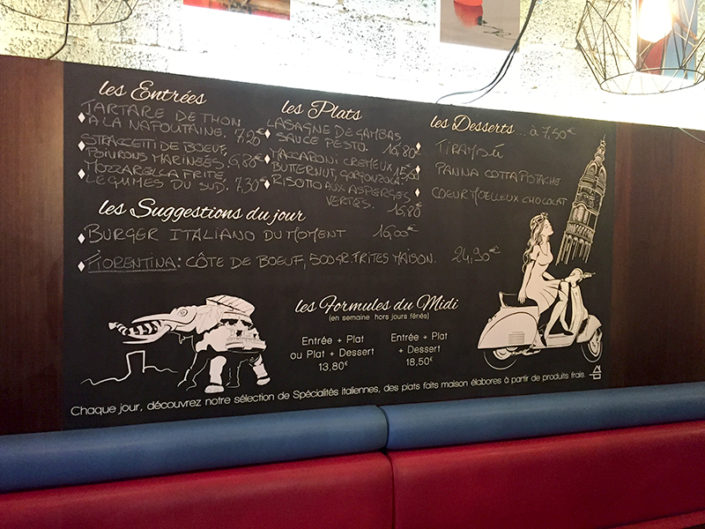 les Entrées
TARTARE DE THON
A LA NAPOLITAINE. 7,20
STRACCETTI DE BOEUF,
POIVRONS MARINÉES. 6,80
MOZZARELLA FRITE,
LÉGUMES DU SUD. 7,30€
les Plats
LASAGNE DE GAMBAS
SAUCE PESTO. 16,80
MACCARONI CREMEUX
BUTTERNUT, GORGONZOLA.
RISOTTO AUX ASPERGES
VERTES. 16,80
les Desserts ... à 7,50€
TIRAMISÙ
PANNA COTTA PISTACHE
COEUR MOELLEUX CHOCOLAT
les Suggestions du jour
BURGER ITALIANO DU MOMENT 16,00€
FIORENTINA: CÔTE DE BOEUF, 500GR. FRITES MAISON. 24,90€
les Formules du Midi
(en semaine hors jours fériés)
Entrée + Plat
ou Plat + Dessert
13,80€
Entrée + Plat
+ Dessert
18,50€
Chaque jour, découvrez notre sélection de Spécialités italiennes, des plats faits maison élabores à partir de produits frais.